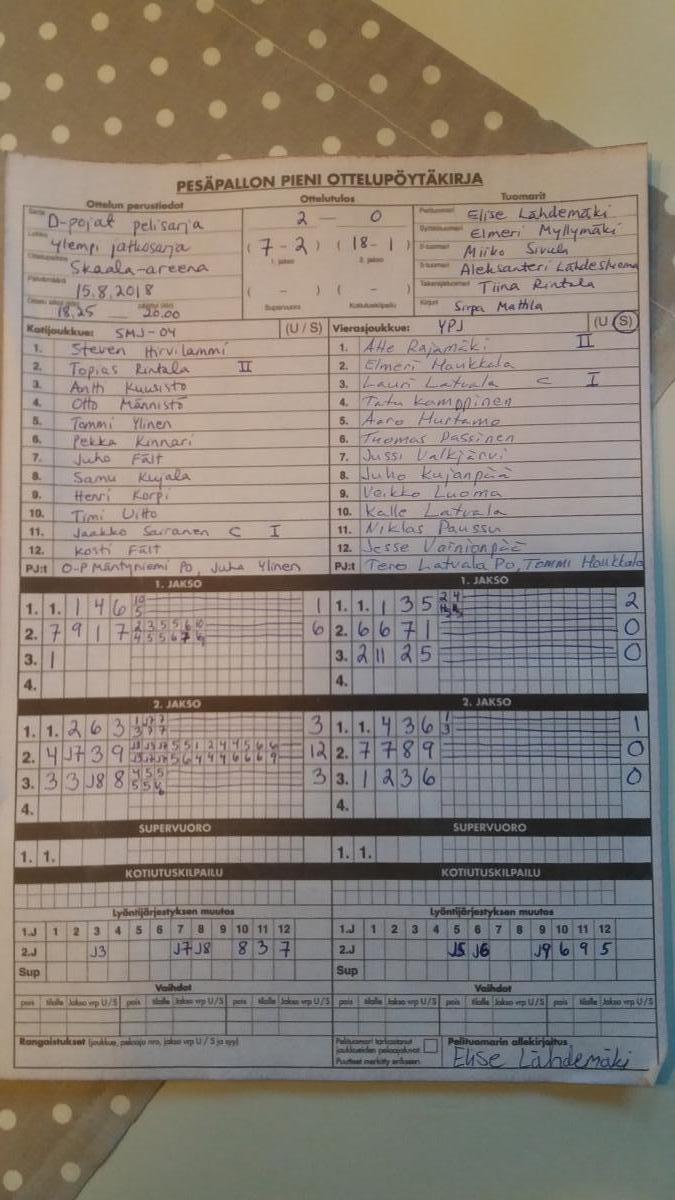 PESÄPALLON PIENI OTTELUPÖYTÄKIRJA
Ottelun perustiedot Ottelutulos Tuomarit
D-pojat pelisarja 2 — 0 Pelituomari Elise Lähdemäki
Ylempi jatkosarja (7 - 2) (18 - 1) Elmeri Myllymäki
1. jakso 2. jakso
Skaala-areena Miiko Sivula
15.8.2018 ( - ) ( - ) Aleksanteri Lähdesluoma
Supervuoro Kotiutuskilpailu Tiina Rintala
18.25 20.00 Kirjuri Sirpa Mattila
Kotijoukkue: SMJ-04 (U / S) Vierasjoukkue: YPJ (U / S)
1. Steven Hirvilammi 1. Atte Rajamäki II
2. Topias Rintala II 2. Elmeri Haukkala
3. Antti Kuusisto 3. Lauri Latvala C I
4. Otto Männistö 4. Tatu Kamppinen
5. Tommi Ylinen 5. Aaro Hurtamo
6. Pekka Kinnari 6. Tuomas Passinen
7. Juho Fält 7. Jussi Valkjärvi
8. Samu Kujala 8. Juho Kujanpää
9. Henri Korpi 9. Veikko Luoma
10. Timi Uitto 10. Kalle Latvala
11. Jaakko Sairanen C I 11. Niklas Paussu
12. Kosti Fält 12. Jesse Vainionpää
PJ:t O-P Mäntyniemi Po, Juha Ylinen PJ:t Tero Latvala Po, Tommi Haukkala
1. JAKSO 1. JAKSO
1. 1. 1 4 6 10 5 1 1. 1. 1 3 5 2
2. 7 9 1 7 6 2. 6 6 7 1 0
3. 1 3. 2 11 2 5 0
4. 4.
2. JAKSO 2. JAKSO
1. 1. 2 6 3 3 1. 1. 4 3 6 1 3 1
2. 4 J7 3 9 12 2. 7 7 8 9 0
3. 3 3 J8 8 3 3. 1 2 3 6 0
4. 4.
SUPERVUORO SUPERVUORO
1. 1. 1. 1.
KOTIUTUSKILPAILU KOTIUTUSKILPAILU
Lyöntijärjestyksen muutos Lyöntijärjestyksen muutos
1.J 1 2 3 4 5 6 7 8 9 10 11 12 1.J 1 2 3 4 5 6 7 8 9 10 11 12
2.J J3 J7 J8 8 3 7 2.J J5 J6 J9 6 9 5
Sup Sup
Vaihdot Vaihdot
pois tilalle Jakso vrp U/S pois tilalle Jakso vrp U/S pois tilalle Jakso vrp U/S pois tilalle Jakso vrp U/S
Rangaistukset (joukkue, pelaaja nro, jakso vrp U / S ja syy) Pelituomari tarkastanut Pelituomarin allekirjoitus
joukkueiden pelaajaluvat
Puutteet merkitty erikseen. Elise Lähdemäki